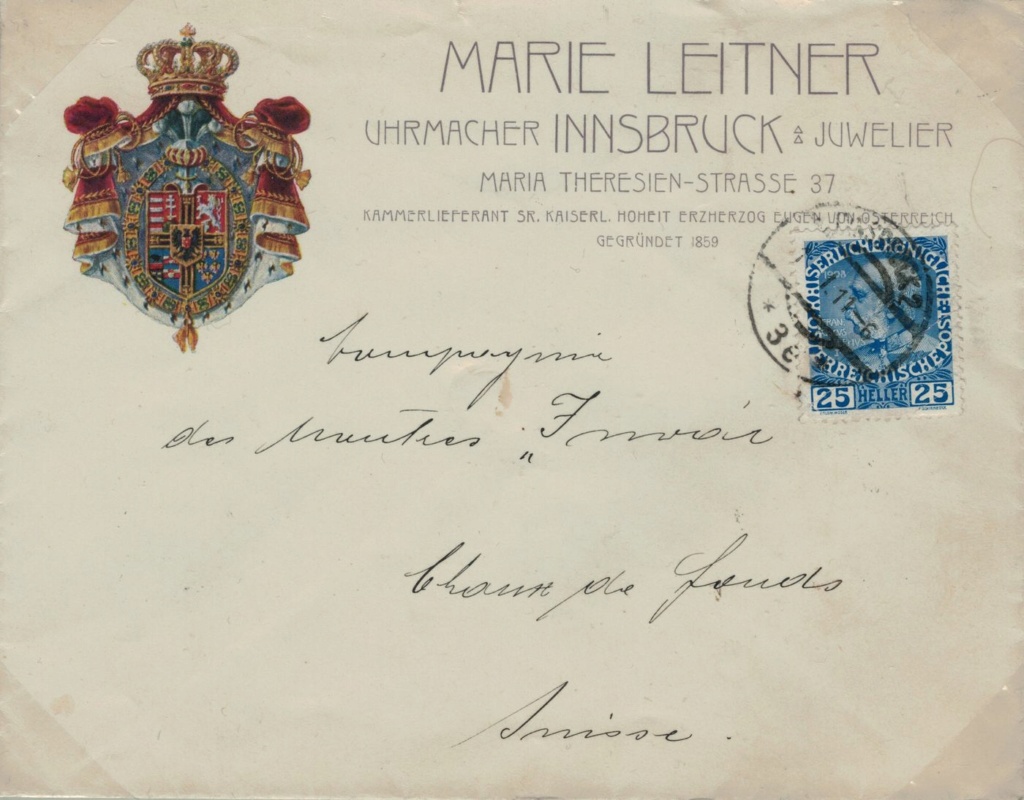 MARIE LEITNER
UHRMACHER INNSBRUCK JUWELIER
MARIA THERESIEN-STRASSE 37
KAMMERLIEFERANT SR. KAISERL. HOHEIT ERZHERZOG EUGEN VON ÖSTERREICH
GEGRÜNDET 1859
KAISERLICHE KÖNIGLICHE ÖSTERREICHISCHE POST
25 HELLER 25
* 3c *
Compagnie
des Montres "Invar
Chaux de fonds
Suisse.